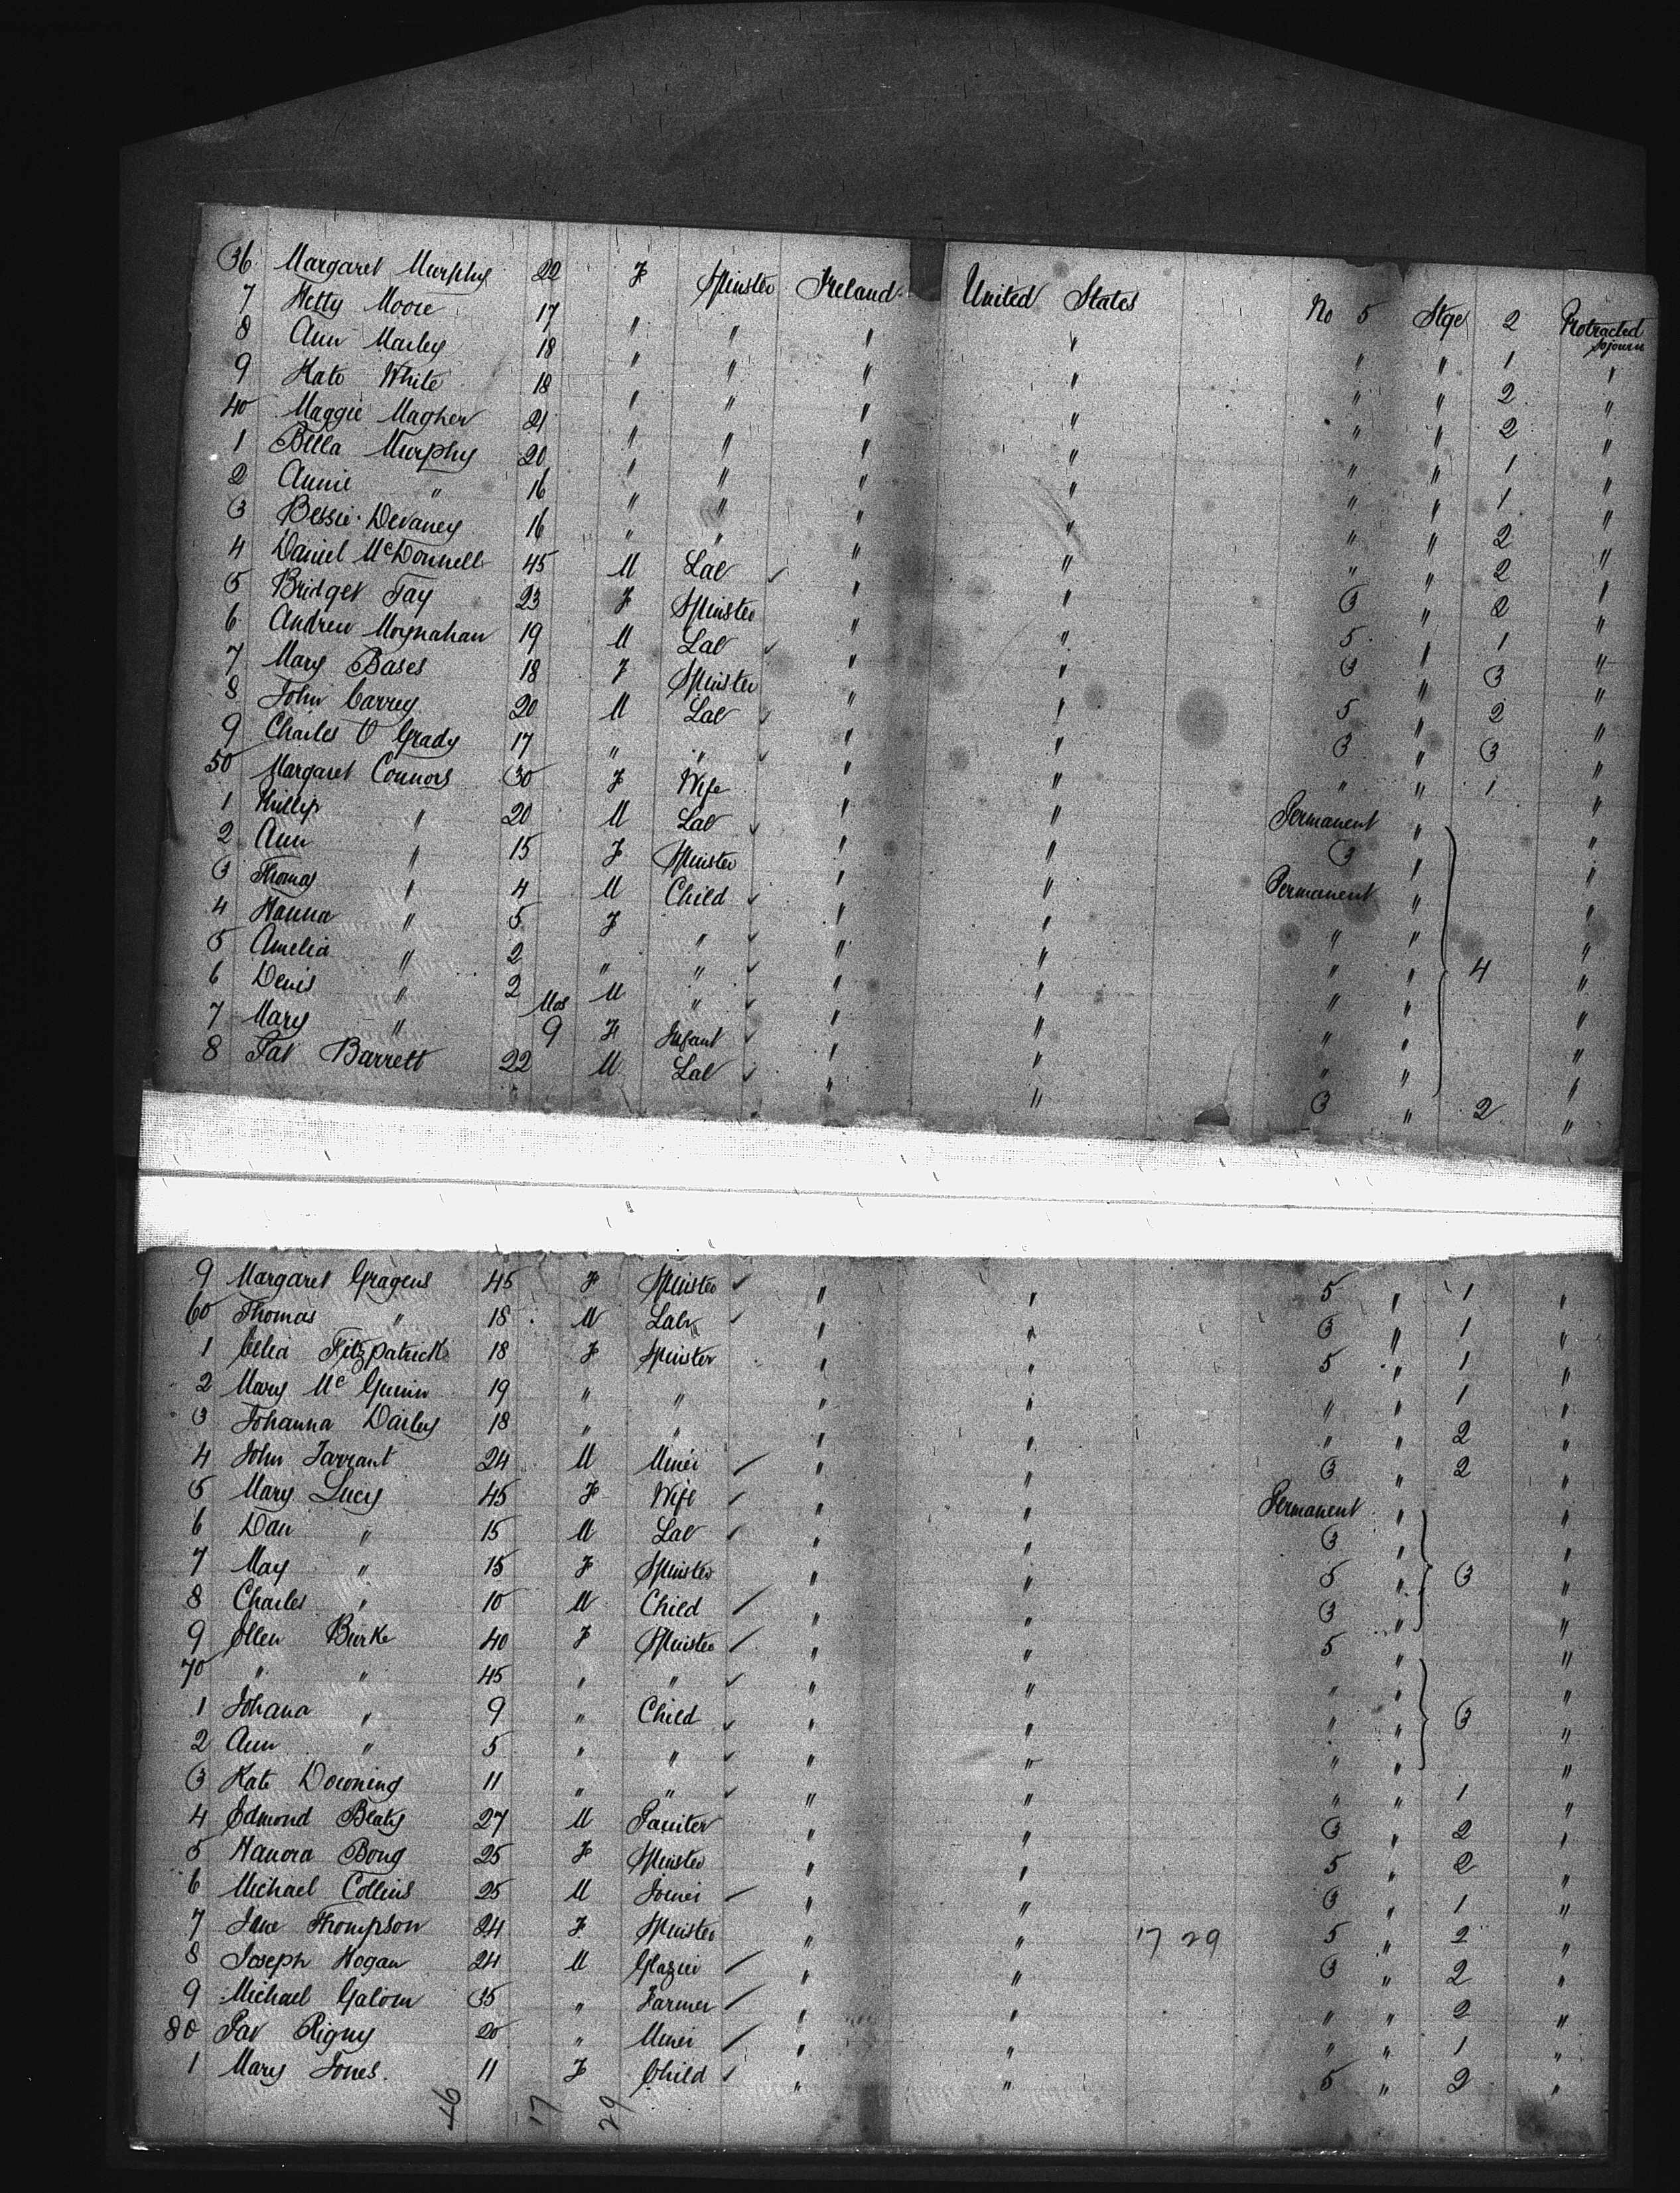 36 Margaret Murphy 22 F Spinster Ireland United States No 5 Stge 2 Protracted Sojourn
7 Hetty Moore 17 " " " " " " 1 "
8 Ann Marley 18 " " " " " " 2 "
9 Kate White 18 " " " " " " 2 "
40 Maggie Magher 21 " " " " " " 1 "
1 Bella Murphy 20 " " " " " " 1 "
2 Annie " 16 " " " " " " 2 "
3 Bessie Devaney 16 " " " " " " 2 "
4 Daniel McDonnell 45 M Lab " " 3 " 2 "
5 Bridget Fay 23 F Spinster " " 5 " 1 "
6 Andrew Moynahan 19 M Lab " " 3 " 3 "
7 Mary Bases 18 F Spinster " " 5 " 2 "
8 John Carrey 20 M Lab " " 3 " 3 "
9 Charles O Grady 17 " " " " " " 1 "
50 Margaret Connors 30 F Wife " " Permanent " "
1 Phillip " 20 M Lab " " 3 " "
2 Ann " 15 F Spinster " " Permanent " "
3 Thomas " 4 M Child " " " " "
4 Hanna " 5 F " " " " " 4 "
5 Amelia " 2 " " " " " " "
6 Denis " 2 M " " " " " "
7 Mary " Mos 9 F Infant " " " " "
8 Pat Barrett 22 M Lab " " 3 " 2 "
9 Margaret Gragens 45 F Spinster " " 5 " 1 "
60 Thomas " 18 M Labr " " 3 " 1 "
1 Celia Fitzpatrick 18 F Spinster " " 5 " 1 "
2 Mary Mc Guinn 19 " " " " " " 1 "
3 Johanna Dailey 18 " " " " " " 2 "
4 John Tarrant 24 M Miner " " 3 " 2 "
5 Mary Lucy 45 F Wife " " Permanent " "
6 Dan " 15 M Lab " " 3 " "
7 May " 15 F Spinster " " 5 " 3 "
8 Charles " 10 M Child " " 3 " "
9 Ellen Burke 40 F Spinster " " 5 " "
70 " " 45 " " " " " " "
1 Johana " 9 " Child " " " " 3 "
2 Ann " 5 " " " " " " "
3 Kate Downing 11 " " " " " " 1 "
4 Edmond Beaty 27 M Painter " " 3 " 2 "
5 Hanora Bong 25 F Spinster " " 5 " 2 "
6 Michael Collins 25 M Joiner " " 3 " 1 "
7 Jane Thompson 24 F Spinster " " 17 29 5 " 2 "
8 Joseph Hogan 24 M Glazier " " 3 " 2 "
9 Michael Galom 35 " Farmer " " " " 2 "
80 Pat Rigny 20 " Miner " " " " 1 "
1 Mary Jones 11 F Child " " 5 " 2 "
46 17 29